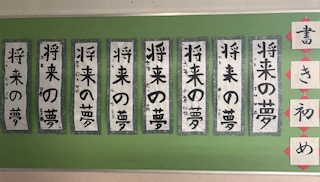 書き初め
将来の夢
将来の夢
将来の夢
将来の夢
将来の夢
将来の夢
将来の夢
将来の夢